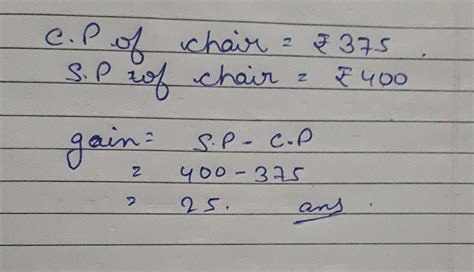 C.P of chair = ₹375.
S.P of chair = ₹400
gain = S.P - C.P
= 400 - 375
= 25. ans.